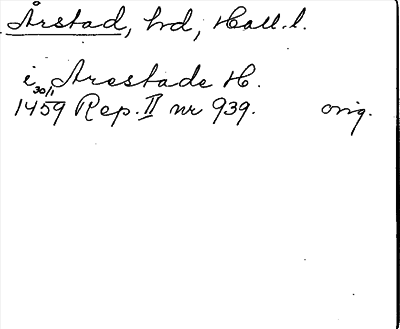 Årstad, hrd, Hall. l.
i Arestade H.
30/1
1459 Rep. II nr 939. orig.